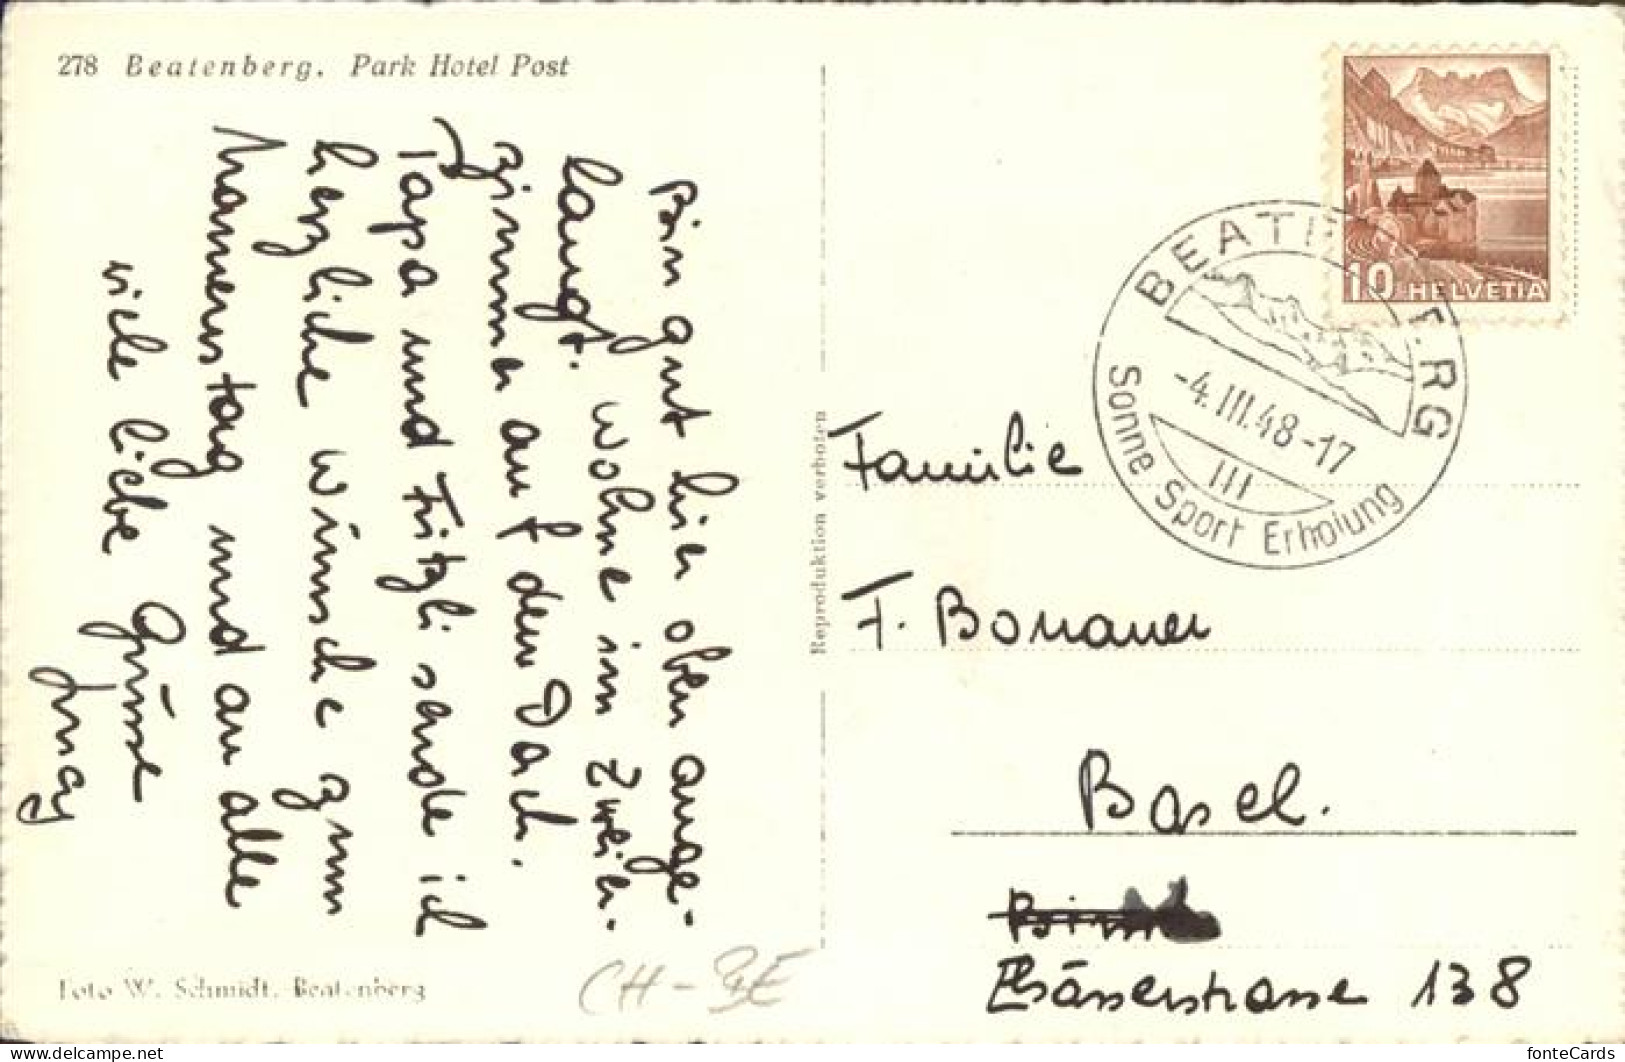 278 Beatenberg. Park Hotel Post
Bin gut hier oben ange-
langt. Wohne im Zweier-
zimmer auf dem Dach.
Papa und Fritzli sende ich
herzliche Wünsche zum
Namenstag und an alle
viele liebe Grüsse
Foto W. Schmidt, Beatenberg
CH-BE
Reproduktion verboten
10 HELVETIA
BEATENBERG
-4.III.48-17
III
Sonne Sport Erholung
Familie
F. Bonauer
Basel.
Elsässerstrasse 138
fonteCards
www.delcampe.net